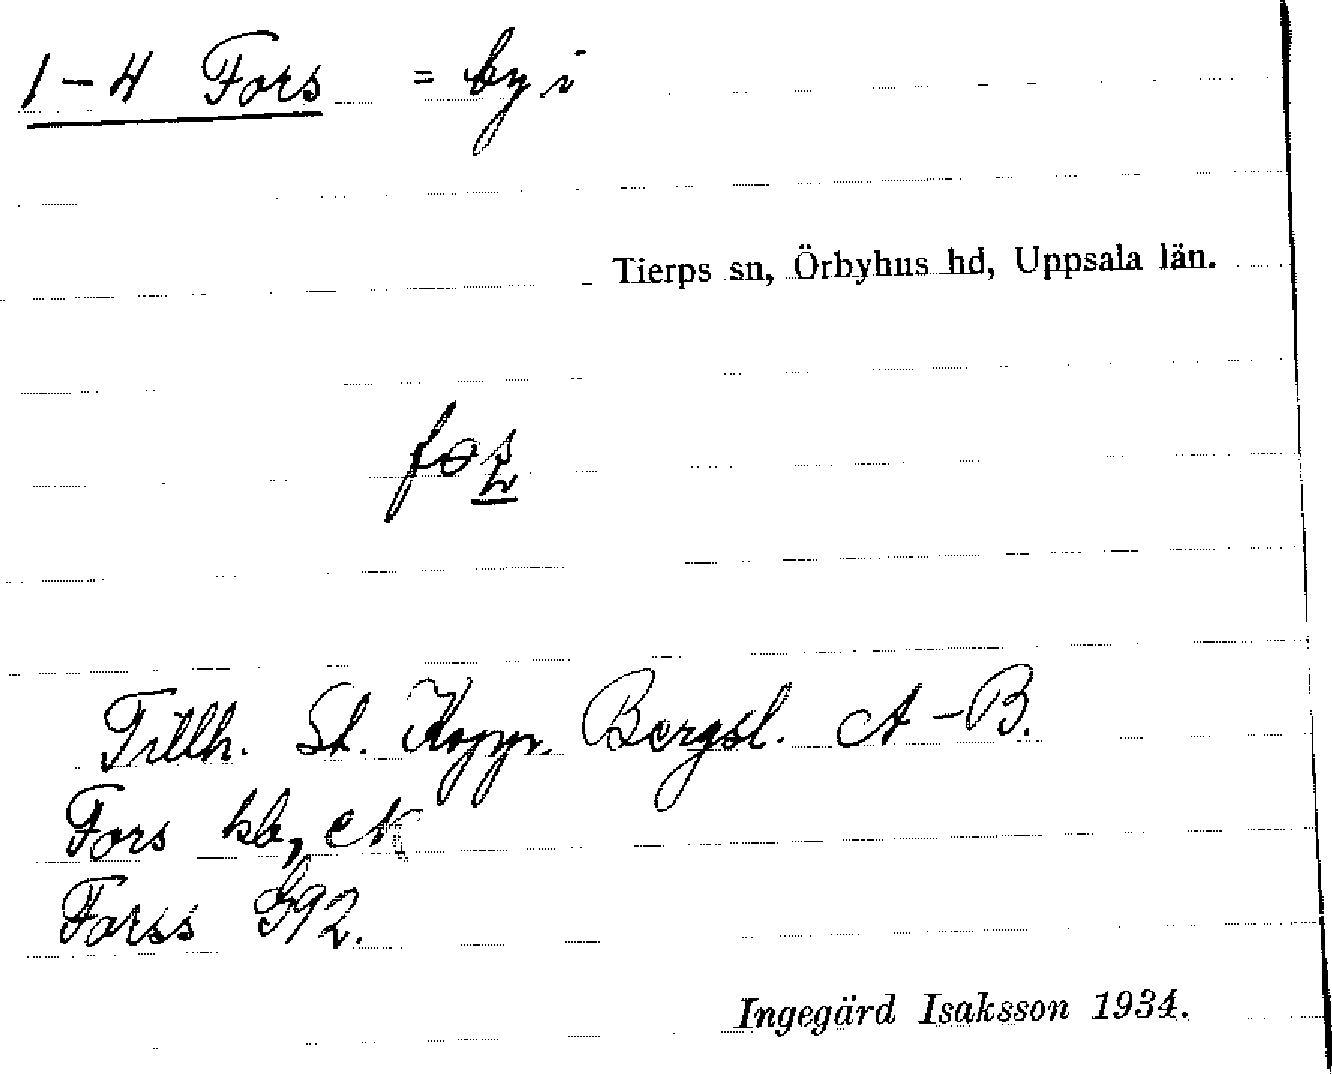 1-4 Fors = by i
Tierps sn, Örbyhus hd, Uppsala län.
Tillh. St. Kopp. Bergsl. A-B.
Fors kb, ek
Forss G92.
Ingegärd Isaksson 1934.